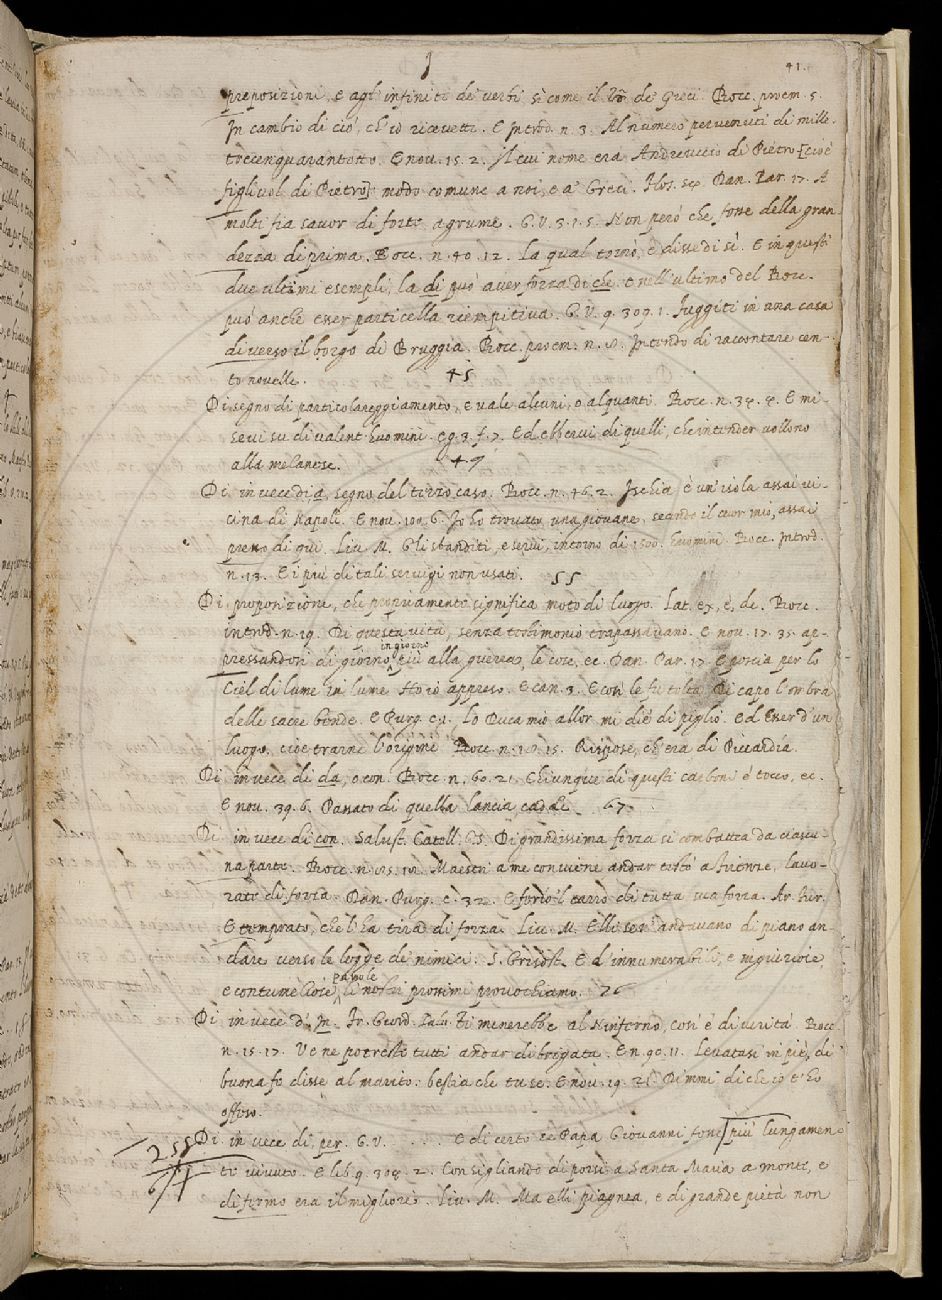 41.
preposizioni, e agl' infiniti de' verbi, sì come il τõ de' Greci. Bocc. proem. 5.
In cambio di ciò, ch' io ricevetti. E Introd. n. 3. Al numero pervenuti di mille
trecenquarantotto. E nov. 15. 2. Il cui nome era Andreuccio di Pietro [cioè
figliuol di Pietro] modo comune a noi, e a' Greci. Dan. Par. 17. A
molti fia savor di forte agrume. G. V. 3. 1. 5. Non però che fosse della gran
dezza di prima. Bocc. n. 40. 12. La qual tornò, e disse di sì. E in questi
due ultimi esempli, la di può aver forza di che. e nell' ultimo del Bocc.
può anche esser particella riempitiva. G. V. 9. 309. 1. Fuggiti in una casa
di verso il borgo di Bruggia. Bocc. proem. n. 8. Intendo di raccontare cen-
to novelle. 45
Di, segno di particolareggiamento, e vale alcuni, o alquanti. Bocc. E mi-
servi su di valent' huomini. Ed ebbervi di quelli, che intender vollono
alla melanese. 49
Di, in vece di a, segno del terzo caso. Bocc. n. 46. 2. Ischia è un' isola assai vi-
cina di Napoli. E nov. 100. 6. Io ho trovata una giovane, secondo il cuor mio, assai
presso di qui. Liv. M. Gli sbanditi, e servi, intorno di 1500. huomini. Bocc. Introd.
n. 13. E i più di tali servigi non usati. 55
Di, proposizione, che propriamente significa moto di luogo. Lat. ex, è, de. Bocc.
introd. n. 19. Di questa vita, senza testimonio trapassavano. E nov. 17. 35. ap-
in giorno
pressandosi di giorno più alla guerra, le cose, ec. Dan. Par. 17. E poscia per lo
Ciel di lume in lume Ho io appreso. E can. 3. E così le fu tolta Di capo l' ombra
delle sacre bende. E Purg. c. 1. Lo Duca mio allor mi diè di piglio. Ed Esser d' un
luogo, cioè trarne l' origine Bocc. Rispose, ch' era di Piccardia.
Di in vece di da, o con. Bocc. n. 60. 21. Chiunque di questi carboni è tocco, ec.
E nov. 39. 6. Passato di quella lancia cadde. 67.
Di in vece di con. Salust. Catell. Di grandissima forza si combattea da ciascu-
na parte. Bocc. Maestri a me conviene andar testé a Firenze, lavo-
rate di forza. Dan. Purg. c. 32. E ferio 'l carro di tutta sua forza. Ar. Fur.
E temprato, che l' ha tira di forza. Liv. M. Elli sen' andavano di piano an-
dare verso le logge de' nimici. S. Grisost. E d' innumerabili, e ingiuriose,
parole
e contumeliose, li nostri prossimi provochiamo. 76
Di in vece d' In. Fr. Giord. Ti menerebbe al Ninferno, così è di verità. Bocc.
n. 15. 17. Ve ne potreste tutti andar di brigata. E n. 90. 11. Levatasi in piè, di
buona fe disse al marito: bestia che tu se. E nov. 19. 21. Dimmi di che io t' ho
offeso.
255 Di in vece di per. G. V. .... E di certo se Papa Giovanni fosse più lungamen-
te vivuto. E lib. 9. 304. 2. Consigliando di porsi a Santa Maria a monti, e
di fermo era il migliore. Liv. M. Ma elli piagnea, e di grande pietà non